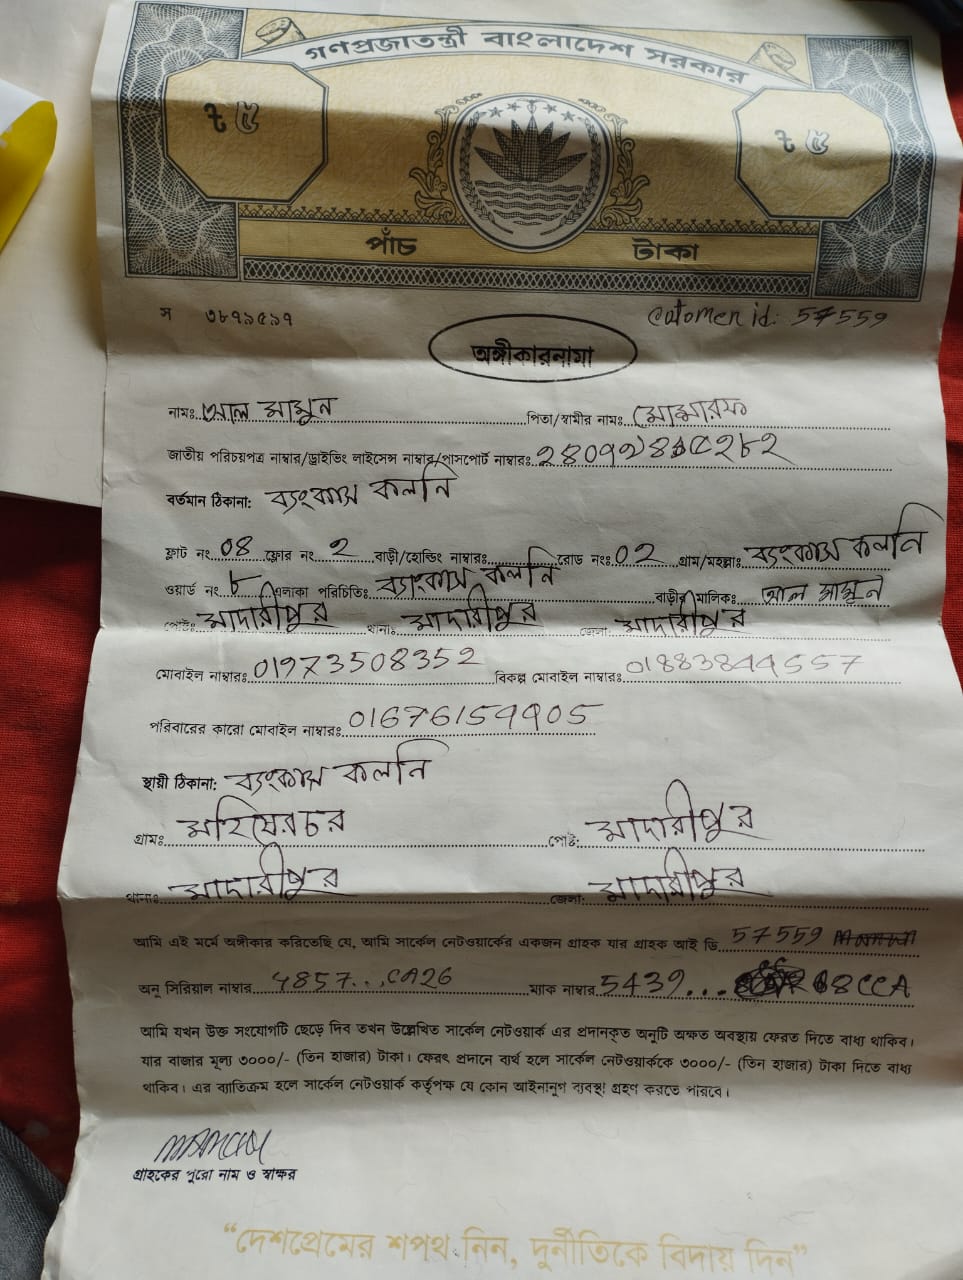 গণপ্রজাতন্ত্রী বাংলাদেশ সরকার
৳ ৫ ৳ ৫
পাঁচ টাকা
স ৩৮৭৯৫৯৭ catomen id: 57559
অঙ্গীকারনামা
নামঃ আল মামুন পিতা/স্বামীর নামঃ মোশারফ
জাতীয় পরিচয়পত্র নাম্বার/ড্রাইভিং লাইসেন্স নাম্বার/পাসপোর্ট নাম্বারঃ
বর্তমান ঠিকানা: ব্যংকাস কলনি
ফ্লাট নং 08 ফ্লোর নং 2 বাড়ী/হোল্ডিং নাম্বারঃ রোড নংঃ 02 গ্রাম/মহল্লাঃ ব্যংকাস কলনি
ওয়ার্ড নং ৮ এলাকা পরিচিতিঃ ব্যাংকাস কলনি বাড়ীর মালিকঃ আল মামুন
পোষ্টঃ মাদারীপুর থানাঃ মাদারীপুর জেলাঃ মাদারীপুর
মোবাইল নাম্বারঃ 01973508352 বিকল্প মোবাইল নাম্বারঃ
পরিবারের কারো মোবাইল নাম্বারঃ
স্থায়ী ঠিকানা: ব্যংকাস কলনি
গ্রামঃ মহিষেরচর পোষ্টঃ মাদারীপুর
থানাঃ মাদারীপুর জেলা: মাদারীপুর
আমি এই মর্মে অঙ্গীকার করিতেছি যে, আমি সার্কেল নেটওয়ার্কের একজন গ্রাহক যার গ্রাহক আই ডি 57559
অনু সিরিয়াল নাম্বার 4857...CA26 ম্যাক নাম্বার 5439... 8CCA
আমি যখন উক্ত সংযোগটি ছেড়ে দিব তখন উল্লেখিত সার্কেল নেটওয়ার্ক এর প্রদানকৃত অনুটি অক্ষত অবস্থায় ফেরত দিতে বাধ্য থাকিব।
যার বাজার মূল্য ৩০০০/- (তিন হাজার) টাকা। ফেরৎ প্রদানে ব্যর্থ হলে সার্কেল নেটওয়ার্ককে ৩০০০/- (তিন হাজার) টাকা দিতে বাধ্য
থাকিব। এর ব্যতিক্রম হলে সার্কেল নেটওয়ার্ক কর্তৃপক্ষ যে কোন আইনানুগ ব্যবস্থা গ্রহণ করতে পারবে।
গ্রাহকের পুরো নাম ও স্বাক্ষর
“দেশপ্রেমের শপথ নিন, দুর্নীতিকে বিদায় দিন”